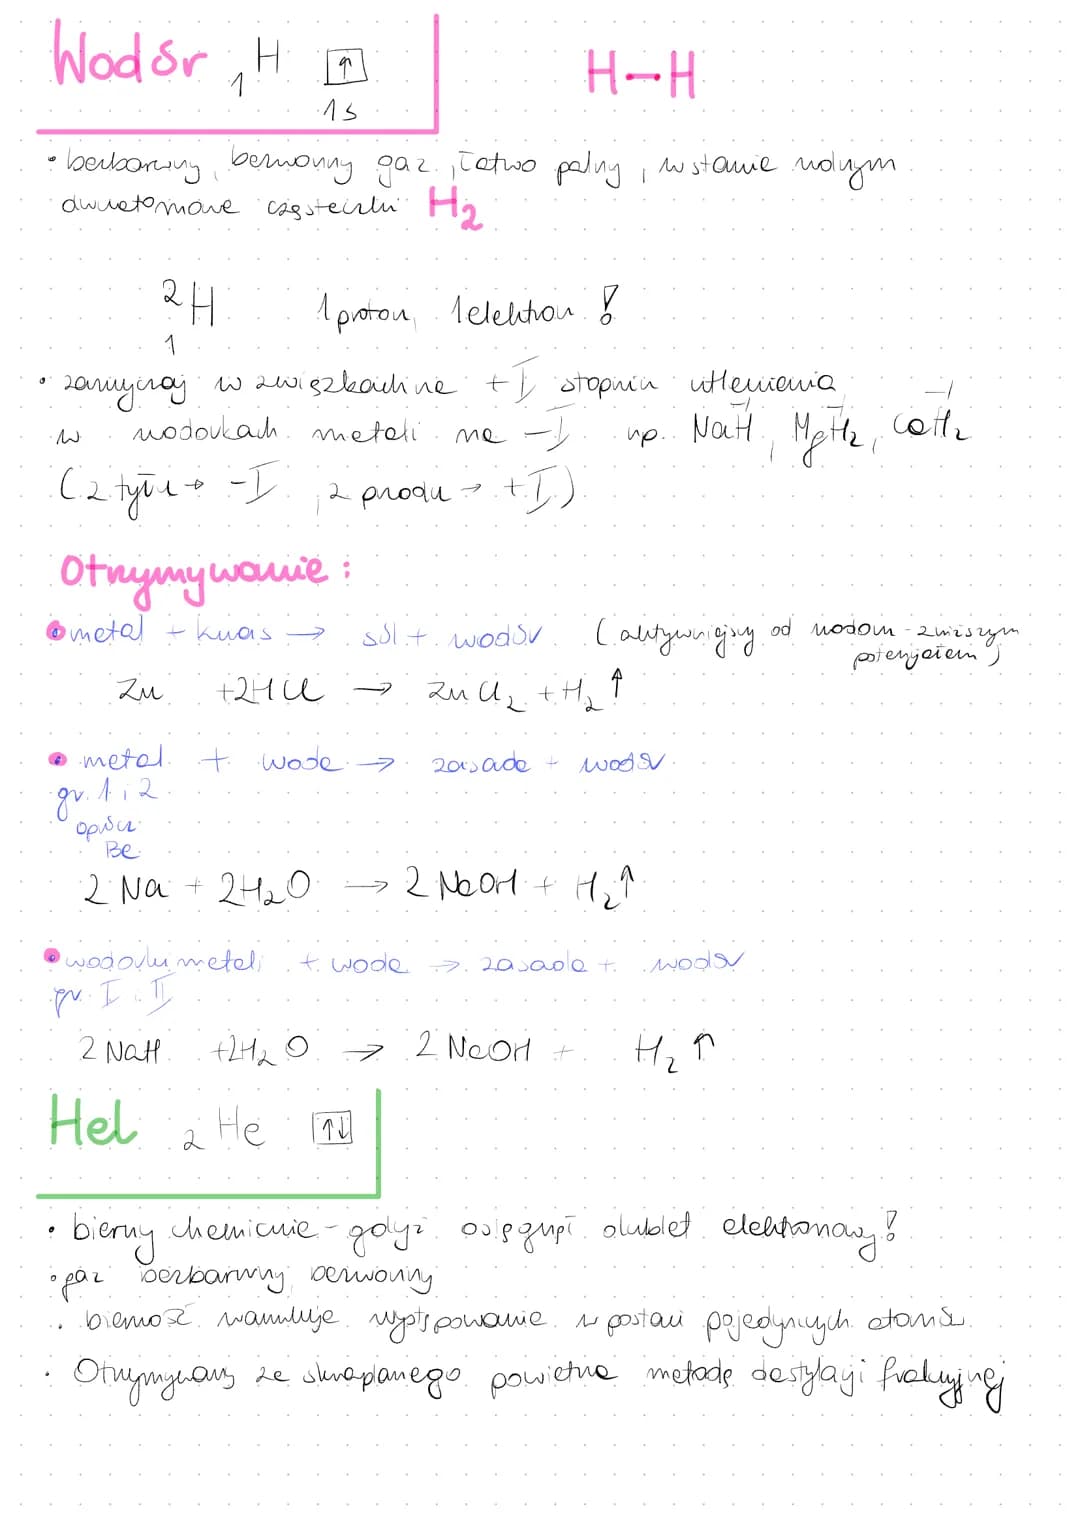 Wodór ₁H ↑ H–H
1s
• bezbarwny, bezwonny gaz, łatwo palny, w stanie wolnym
dwuatomowe cząsteczki H₂
²₁H 1 proton, 1 elektron !
• zazwyczaj w związkach na +I stopniu utlenienia
w wodorkach metali na -I np. NaH, MgH₂, CaH₂
-I -I -I
(z tyłu → -I, z przodu → +I)
Otrzymywanie:
• metal + kwas → sól + wodór (aktywniejszy od wodoru - z niższym
potencjałem)
Zn + 2HCl → ZnCl₂ + H₂↑
• metal + woda → zasada + wodór
gr. 1 i 2
oprócz
Be
2 Na + 2H₂O → 2 NaOH + H₂↑
• wodorki metali + woda → zasada + wodór
gr. I i II
2 NaH + 2H₂O → 2 NaOH + H₂↑
Hel ₂He ↑↓
• bierny chemicznie - gdyż osiągnął dublet elektronowy!
• gaz bezbarwny, bezwonny
• bierność warunkuje występowanie w postaci pojedynczych atomów.
• Otrzymywany ze skraplanego powietrza metodą destylacji frakcyjnej